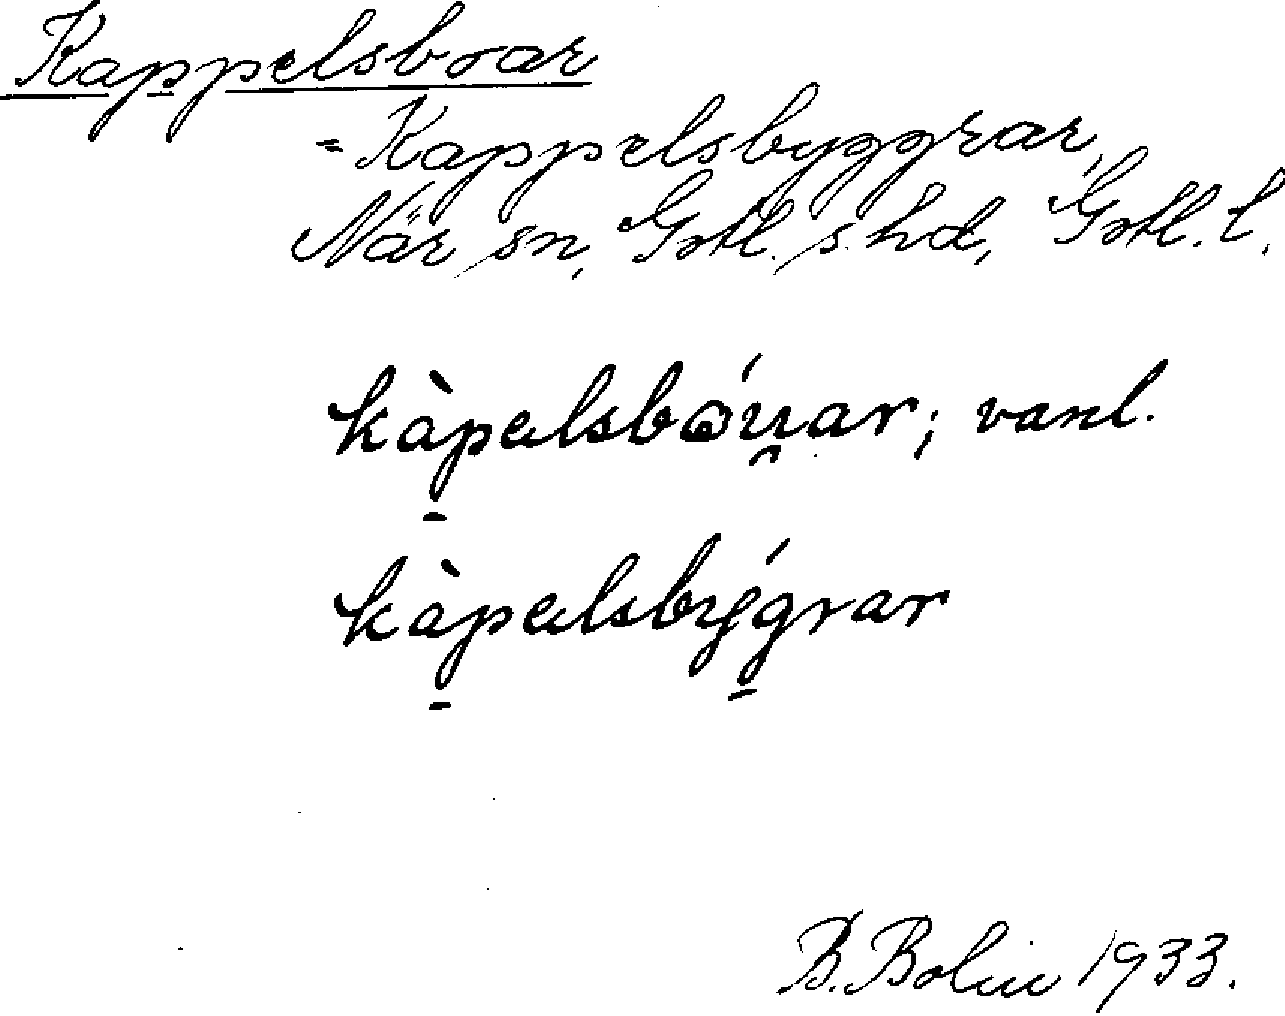 Kappelsboar
= Kappelsbyggrar,
När sn, Gotl. s. hd, Gotl. l.
kàpælsbóu̯ar; vanl.
kàpælsbýgrar
B. Bolin 1933.